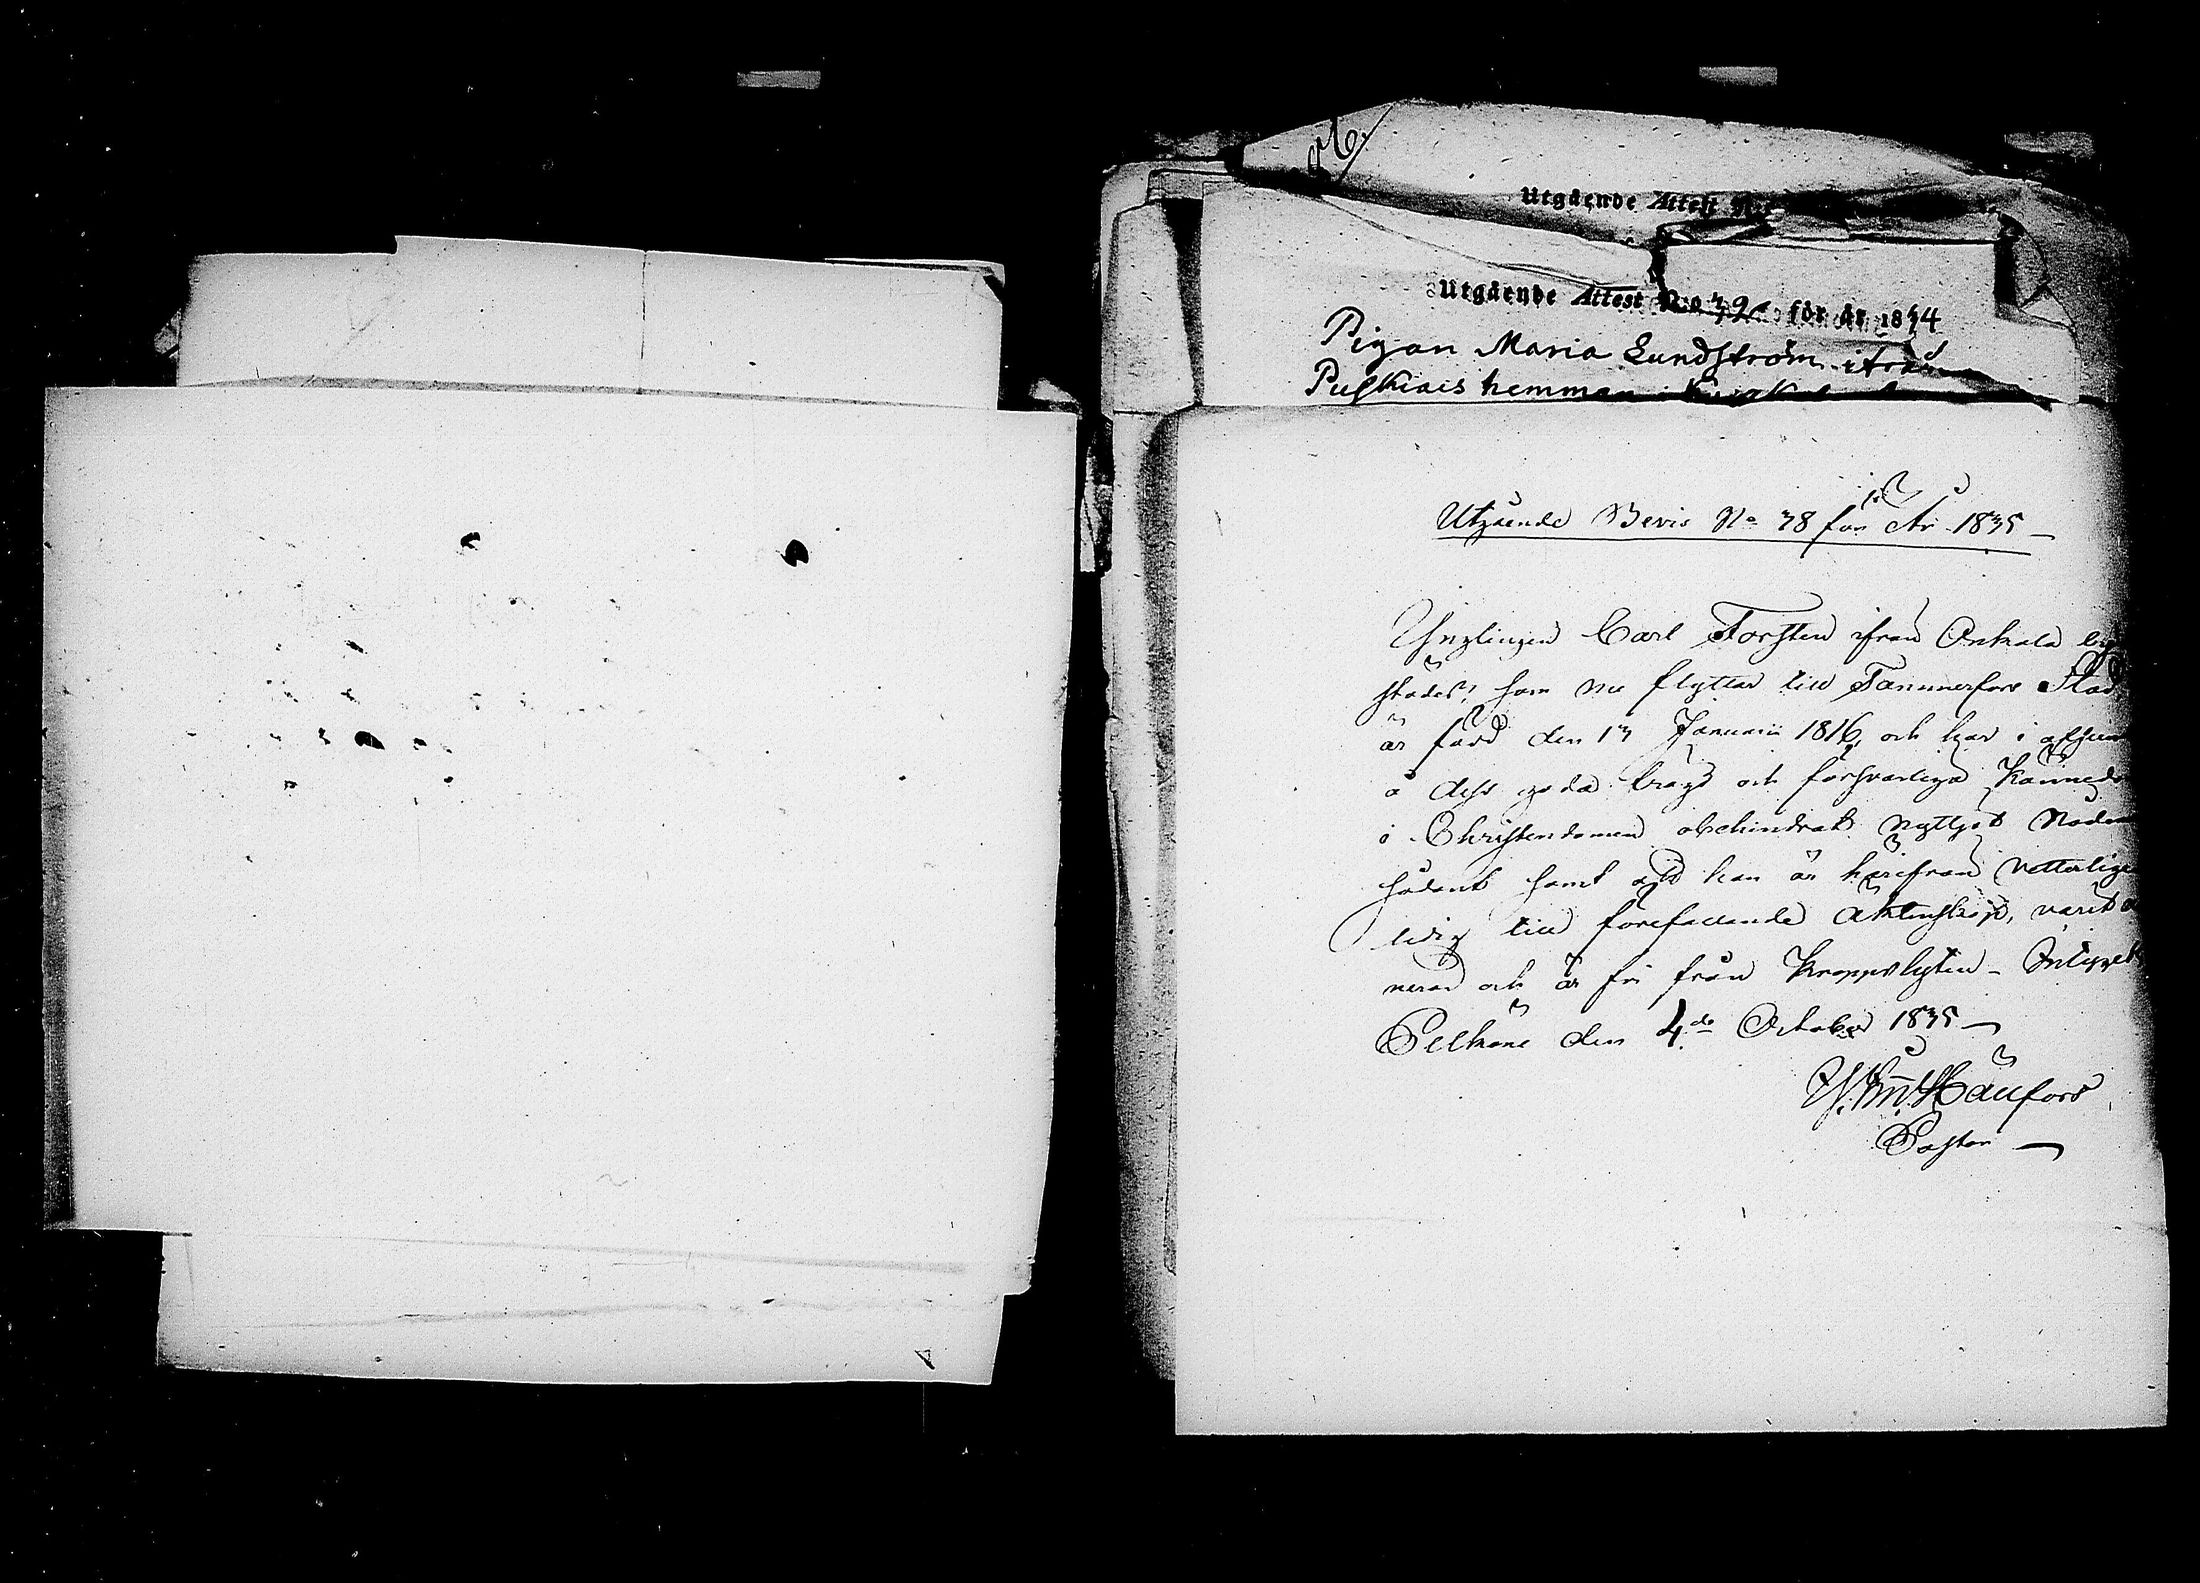 96.
Utgående Attest N:o
Utgående Attest N:o 392 för år 1844
Pigan Maria Lundström ifrån
Pulkiais hemman i
Utgående Bevis No 38 för År 1835
Ynglingen Carl Forsten ifrån Onkala by
städes, som nu flyttar till Tammerfors Stad
är född den 13 Januarii 1816, och har i afseende
å dess goda bragd och försvarliga Kännedom
i Christendomen obehindrat nyttjat Nådem
samt att han är härifrån vetterligen
ledig till förefallande Äktenskap, varit
nerad och är fri från Kroppslyten – Intygget
Pelkäne den 4de October 1835
Hällfors
Pastor